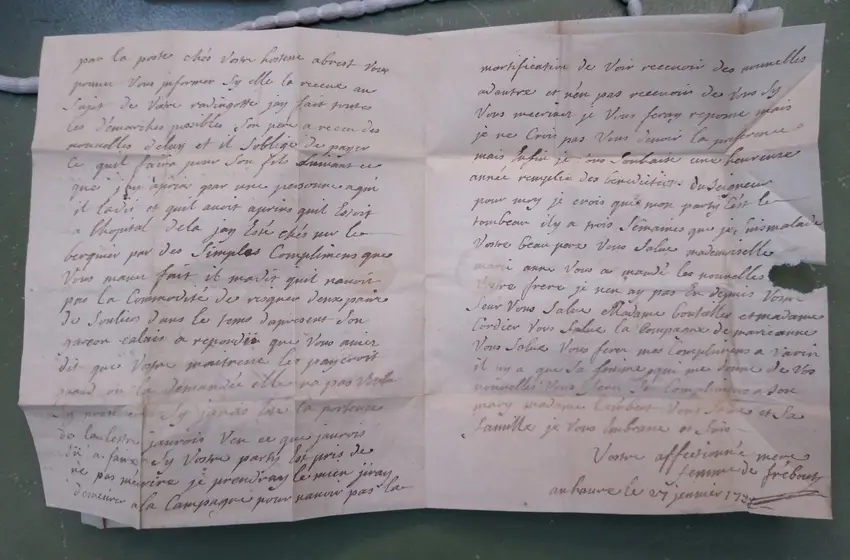 par la poste chés Vostre hostesse abrest Vous
pouvez Vous informer Sy elle la receue au
Sujet de Votre redingotte jay fait toutes
les démarches posibles Son pere a receu des
nouvelles deluy et il Soblige de payer
Ce quil faira pour Son fils Suivant ce
que jay apris par une personne aqui
il ladit et quil avoit apris quil Estoit
a lhopital dela jay Esté chés mr le
berguier par des Simples Complimens que
Vous mavez fait il madit quil navoit
pas la Commodité de risquer
de Souliers dans le tems dapresent Son
garcon calais a repondu que Vous aviez
dit que Vostre maitresse les payeroit
quand on la demandée elle na pas Voullu
Sy javois Esté la porteuse
de la lettre jaurois Veu ce que jaurois
a faire Sy Vostre party Est pris de
ne pas mecrire je prendray le mien jiray
demeurer ala Campagne pour navoir pas la
mortification de Voir recevoir des nouvelles
adautre et nen pas recevoir de Vous Sy
Vous mecrivez je Vous feray reponse mais
je ne Crois pas Vous devoir la preference
mais Enfin je Vous Souhaite une heureuse
année remplie des benedictions du Seigneur
pour moy je crois que mon party Cest le
tombeau il y a trois Semaines que je Suis malade
Vostre beau pere Vous Salue mademoiselle
marie anne Vous a mandé les nouvelles
Vostre frere je nen ay pas Eu depuis Vostre
Seur Vous Salue Madame et madame
Cordier Vous Salue la Compagne de marieanne
Vous Salue Vous ferez mes Complimens a Varin
il ny a que Sa femme qui me donne de Vos
nouvelles Vous ferez Ses Complimens a Son
mary madame Lambert Vous Salue et Sa
famille je Vous Embrasse et Suis
Vostre affectionée mere
femme de
au havre le 27 jenvier